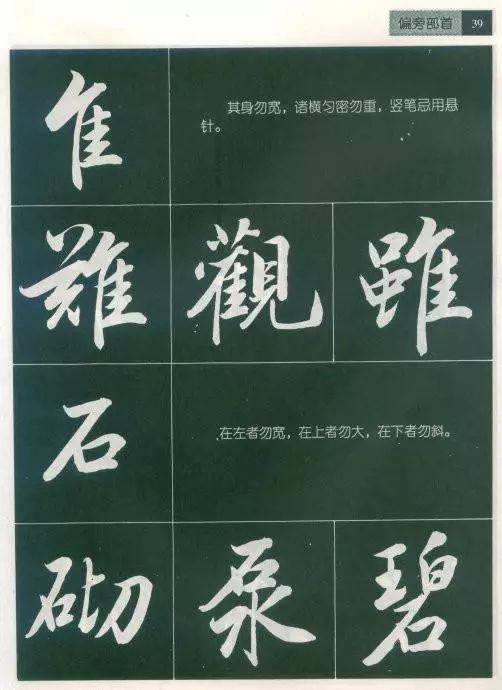 偏旁部首 39
隹
其身勿宽，诸横匀密勿重，竖笔忌用悬
针。
難 觀 雖
石
在左者勿宽，在上者勿大，在下者勿斜。
砌 泵 碧